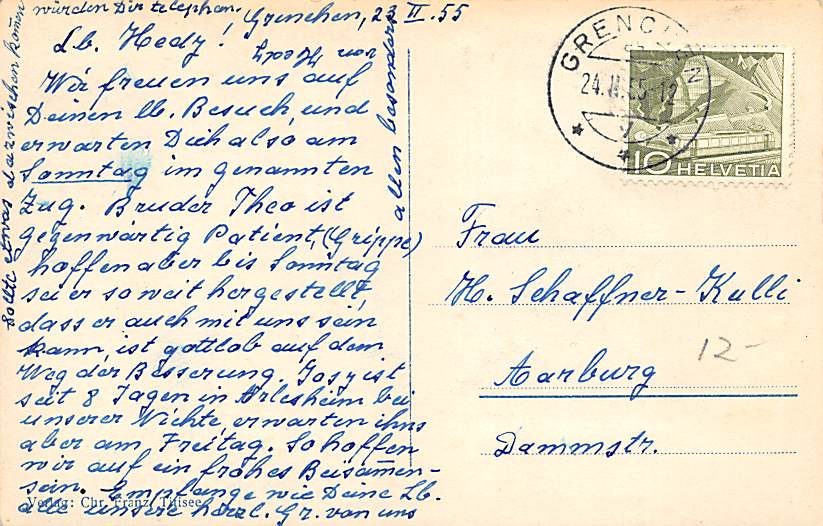 Grenchen, 23 II. 55
Lb. Hedy!
Wir freuen uns auf
Deinen lb. Besuch, und
erwarten Dich also am
Sonntag im genannten
Zug. Bruder Theo ist
gegenwärtig Patient, (Grippe)
hoffen aber bis Sonntag
sei er so weit hergestellt,
dass er auch mit uns sein
kann, ist gottlob auf dem
Weg der Besserung. Josy ist
seit 8 Tagen in Arlesheim bei
unserer Nichte, erwarten ihns
aber am Freitag. So hoffen
wir auf ein frohes Beisamen-
sein. Empfange wie Deine Lb.
alle unsere herzl. Gr. von uns
allen besonders
von Hedy
Sollte etwas dazwischen kommen
würden Dir telephon.
Verlag: Chr. Franz, Titisee
GRENCHEN
24.II.55-12
10 HELVETIA
Frau
H. Schaffner-Kulli
Aarburg
Dammstr.
12-